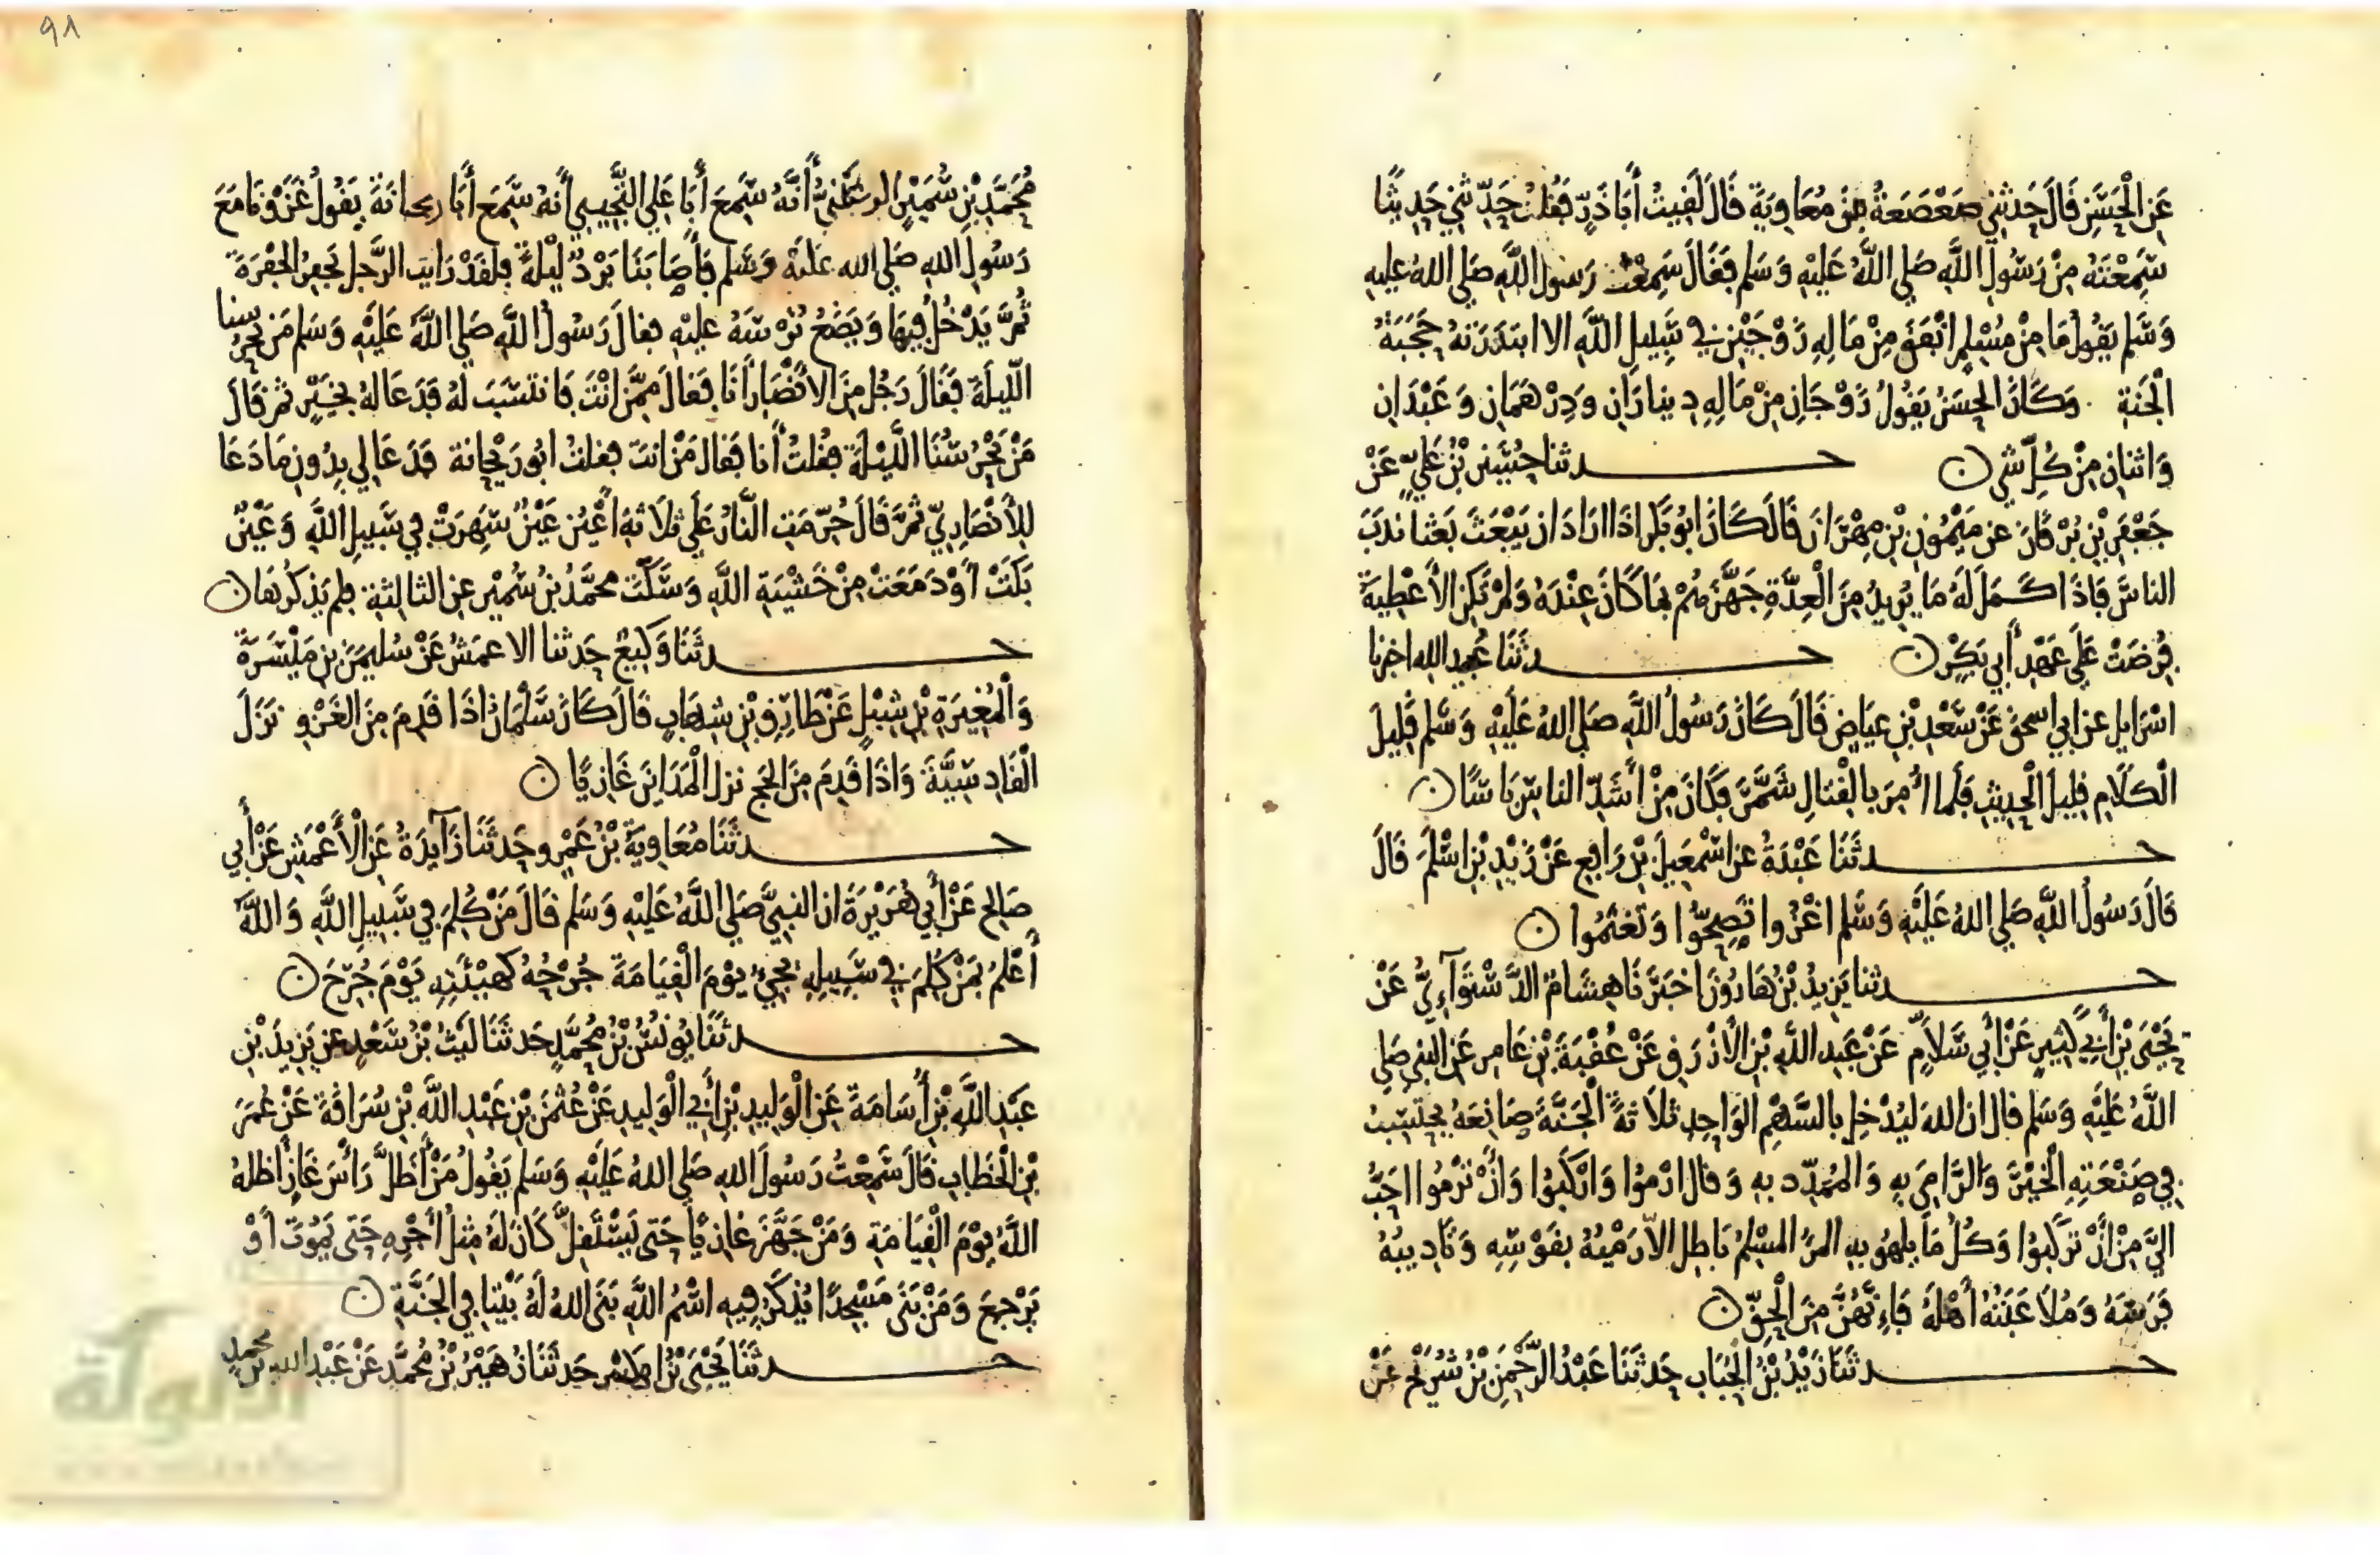 عَنِ الْحَسَنِ قَالَ حَدثنِي صَعْصَعَةُ بنُ مُعَاوِيَةَ قَالَ لَقِيتُ أَبَا ذَرٍّ فَقُلتُ حَدِّثنِي حَدِيثًا
سَمِعْتَهُ مِنْ رَسُولِ اللَّهِ صَلى اللَّهُ عَلَيْهِ وَسَلم فَقَالَ سَمِعْتُ رَسُولَ اللَّهِ صَلى اللهُ عليهِ
وَسَلم يَقُولُ مَا مِنْ مُسْلِمٍ انْفَقَ مِنْ مَالِهِ زَوْجَيْنِ فِي سَبِيلِ اللَّهِ الا ابتَدَرَتهُ حَجَبَةُ
الْجَنةِ وَكَانَ الحسَنُ يَقُولُ زَوْجَانِ مِنْ مَالِهِ دِينارَانِ وَدِرْهَمَانِ وَعَبْدَانِ
وَاثنانِ مِنْ كُلِّ شي ن حــدثنا حُسَيْنُ بْنُ عَلِيٍّ عَنْ
جَعْفَرِ بْنِ بُرْقَانَ عن مَيْمُونِ بْنِ مِهْرَانَ قَالَ كَانَ ابُو بَكر اذَا ارَادَ ان يَبْعَثَ بَعْثا ندَبَ
الناسَ فَاذَا كَمَلَ لَهُ مَا يُرِيدُ مِنَ الْعِدَّةِ جَهَّزَهُمْ بمَا كَانَ عِنْدَهُ وَلمْ تَكنِ الاَعْطِيَةُ
فُرِضَتْ عَلَى عَهْدِ أَبي بَكْرٍ ن حــدثَنَا عُبيد الله اخبرنا
اسْرَايل عن ابي اسحق عَنْ سَعْدِ بْنِ عِيَاضٍ قَالَ كَانَ رَسُولُ اللَّهِ صَلى اللهُ عَلَيْهِ وَسَلم قَلِيلَ
الْكَلَامِ قلِيلَ الْحدِيثِ فَلَما اُمِرَ بالْقتالِ شَمَّرَ فكَانَ مِنْ أَشَدِّ الناسِ بَاسًا ن
حــدثَنَا عَبْدَةُ عن اسْمعِيلَ بْنِ رَافِعٍ عَنْ زَيْدِ بْنِ اسْلَمَ قَالَ
قَالَ رَسُولُ اللَّهِ صَلى اللهُ عَلَيْهِ وَسَلم اغْزُوا تَصِحُّوا وَتَغْنَمُوا ن
حــدثنا يَزِيدُ بْنُ هَارُونَ اخبَرَنَا هِشَامٌ الدَّسْتوَآءِيُّ عَنْ
يَحْيَى بْنِ أَبِي كَثِيرٍ عَنْ أَبي سَلاَّمٍ عَنْ عَبدِ اللَّهِ بْنِ الأَزْرَقِ عَنْ عُقْبَةَ بْنِ عَامِرٍ عَنِ النبي صَلى
اللَّهُ عَلَيْهِ وَسَلم قال ان اللهَ ليُدْخِل بالسَّهْمِ الوَاحِدِ ثلاَثةً الْجَنَّةَ صَانِعَهُ يحتسِبُ
فِي صَنْعَتِهِ الْخيْرَ وَالرَّامِيَ بِهِ وَالمُمِدّ بهِ وَقال ارْمُوا وَارْكَبُوا وَاَنْ تَرْمُوا احَبُّ
اليَّ مِنْ اَنْ تَرْكَبُوا وَكُلُّ مَا يلهُو بهِ المرْءُ المسْلِمُ بَاطِل الاّ رَمْيَهُ بقَوْسِهِ وَتَادِيبَهُ
فَرَسَهُ وَمُلاَعَبَتَهُ أَهْلَهُ فَاِنَّهُنَّ مِنَ الْحقِّ ن
حــدثَنَا زَيْدُ بْنُ الْحُبَابِ حَدثَنَا عَبْدُ الرَّحْمَنِ بْنُ شُرَيْحٍ عَنْ
٩٨
مُحَمَّدِ بْنِ سُمَيْرٍ الرعيني أَنَّهُ سَمِعَ أَبَا عَلِي التُّجِيبِي أَنهُ سَمِعَ أَبَا ريحانَةَ يَقُولُ غَزَوْنَا مَعَ
رَسُولِ اللهِ صَلى الله عَلَيهِ وَسَلم فَأَصَابَنَا بَرْدٌ لَيْلَةً فلقَدْ رَايت الرَّجل يَحفِرُ الحُفْرَةَ
ثُمَّ يَدْخُلُ فِيهَا وَيَضَعُ تُرْسَهُ عليْهِ فقالَ رَسُولُ اللَّهِ صَلى اللَّهُ عَلَيْهِ وَسَلم مَن يَحْرُسنا
اللّيلَةَ فقَالَ رَجُل مِنَ الاَنْصَارِ أَنَا فقَالَ مِمَّن انْتَ فَانتَسَبَ لَهُ فَدَعَا لهُ بخيْرٍ ثم قَالَ
مَنْ يَحْرُسُنَا اللَّيْلَةَ فقُلتُ أَنا فقَال مَنْ انتَ فقلتُ ابُو رَيْحَانة فَدَعَا لي بِدُونِ مَا دَعَا
لِلأَنصَارِيِّ ثمَّ قَالَ حُرِّمَتِ النَّارُ عَلَى ثَلَاثَةِ اَعْيُنٍ عَيْنٌ سَهِرَتْ فِي سَبِيلِ اللَّهِ وَعَيْنٌ
بَكَتْ اَوْ دَمَعَتْ مِنْ خَشْيَةِ اللَّهِ وَسَكَتَ محمَّدُ بْنُ سُمَيْرٍ عن الثالثةِ فلم يَذكُرْهَا ن
حــدثَنَا وَكِيعٌ حَدثنا الاعمَشُ عَنْ سُليمَنَ بنِ مَيْسَرَةَ
وَالْمُغِيرَةِ بْنِ شِبْلٍ عَنْ طَارِقِ بْنِ شِهَابٍ قَالَ كَانَ سَلْمَانُ اذَا قَدِمَ مِنَ الغَزْوِ نَزَلَ
الْقَادِسِيَّةَ وَاذَا قَدِمَ مِنَ الحَج نزل الْمَدَايِنَ غَازِيًا ن
حــدثَنَا مُعَاوِيَةُ بْنُ عَمْرٍو حَدثَنَا زَآيِدَةُ عَنِ الْأَعْمَشِ عَنْ أَبي
صَالحٍ عَنْ أَبي هُرَيْرَةَ ان النبِيَّ صَلى اللَّهُ عَلَيْهِ وَسَلم قَالَ مَنْ كُلِمَ فِي سَبِيلِ اللَّهِ وَاللَّهُ
أَعْلَمُ بمَنْ كُلِمَ فِي سَبِيلِهِ يَجِيءُ يوْمَ الْقِيَامَةِ جُرْحُهُ كَهَيْئَتِهِ يَوْمَ جُرِحَ ن
حــدثَنَا يُونُسُ بْنُ مُحَمَّدٍ حَدثَنَا لَيْثُ بْنُ سَعْدٍ عن يَزِيدَ بْنِ
عَبْدِ اللَّهِ بْنِ أُسَامَةَ عَنِ الْوَلِيدِ بْنِ أَبِي الْوَلِيدِ عَنْ عُثْمَنَ بْنِ عَبْدِ اللَّهِ بْنِ سُرَاقَةَ عَنْ عُمَرَ
بْنِ الْخَطَّابِ قَالَ سَمِعْتُ رَسُولَ اللهِ صَلى اللهُ عَلَيْهِ وَسَلم يَقُولُ مَنْ أَظَلَّ رَأْسَ غَازٍ أَظلهُ
اللَّهُ يَوْمَ الْقِيَامَةِ وَمَنْ جَهَّزَ غَازِيًا حَتى يَسْتَقِلَّ كَانَ لَهُ مِثلُ أَجْرِهِ حَتى يَمُوتَ أَوْ
يَرْجِعَ وَمَنْ بَنَى مَسْجِدًا يُذكَرُ فِيهِ اسْمُ اللَّهِ بَنَى اللهُ لَهُ بَيْتا فِي الجَنَّةِ ن
حــدثَنَا يَحْيَى بْنُ ابي بكير حَدثَنَا زُهَيْرُ بْنُ مُحَمَّدٍ عَنْ عَبْدِ اللهِ بْنِ محمدِ
الألوكة